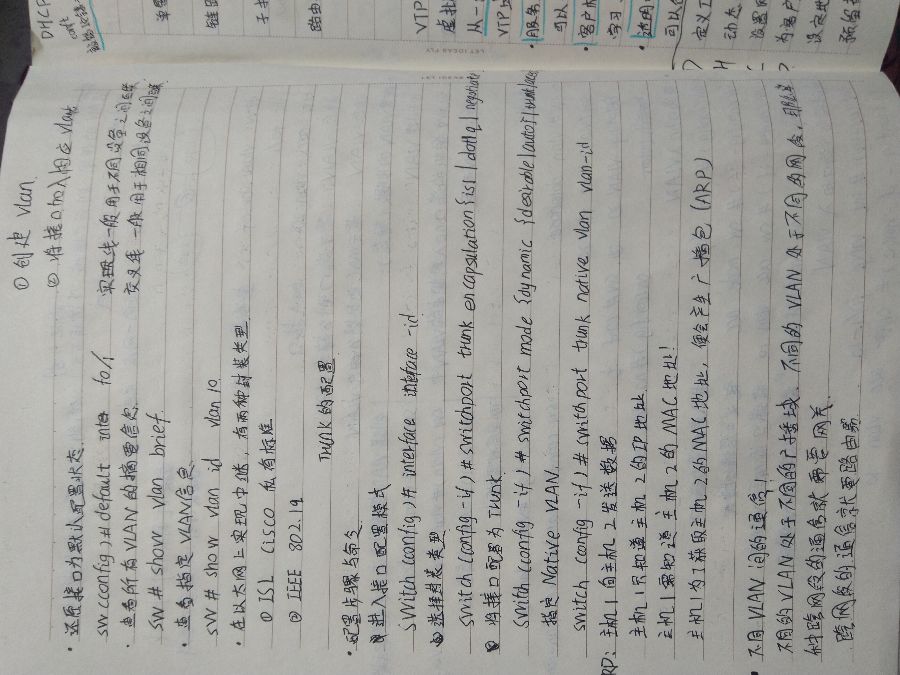 ① 创建 vlan
② 将接口加入相应 vlan
• 还原接口为默认配置状态
sw(config)# default inter fo/1
实现线一般用于不同设备之间连
• 查看所有VLAN的摘要信息
交叉线一般用于相同设备之间连
sw # show vlan brief
• 查看指定VLAN信息
sw # show vlan id vlan 10
• 在以太网上实现中继,有两种封装类型
① ISL Cisco 私有标准
② IEEE 802.19
Trunk的配置
• 配置步骤与命令
① 进入接口配置模式
Switch(config)# interface interface-id
② 选择封装类型
switch(config-if)# switchport trunk encapsulation {isl | dot1q | negotiate
③ 将接口配置为Trunk
switch(config-if)# switchport mode {dynamic {desirable | auto} | trunk
指定 Native VLAN
switch(config-if)# switchport trunk native vlan vlan-id
RP: 主机1向主机2发送数据
主机1只知道主机2的IP地址
主机1需知道主机2的MAC地址!
主机1为了获取主机2的MAC地址,便会产生广播包(ARP)
• 不同VLAN间的通信!
不同的VLAN处于不同的广播域、不同的VLAN处于不同的网段,
种跨网段的通信就需要网关
跨网段的通信就要路由器
DHCP
VTP
LET IDEAS FLY